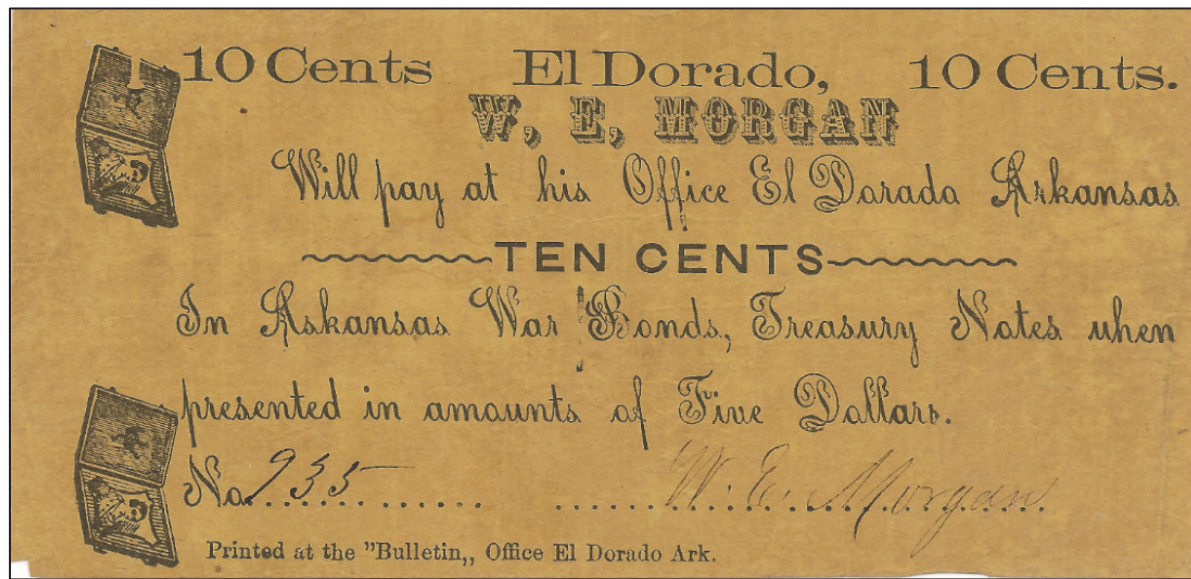 10 Cents El Dorado, 10 Cents.
W, E, MORGAN
Will pay at his Office El Dorado Arkansas
TEN CENTS
In Askansas War Bonds, Treasury Notes uhen
presented in amounts of Five Dollars.
No. 935 W. E. Morgan
Printed at the "Bulletin,, Office El Dorado Ark.